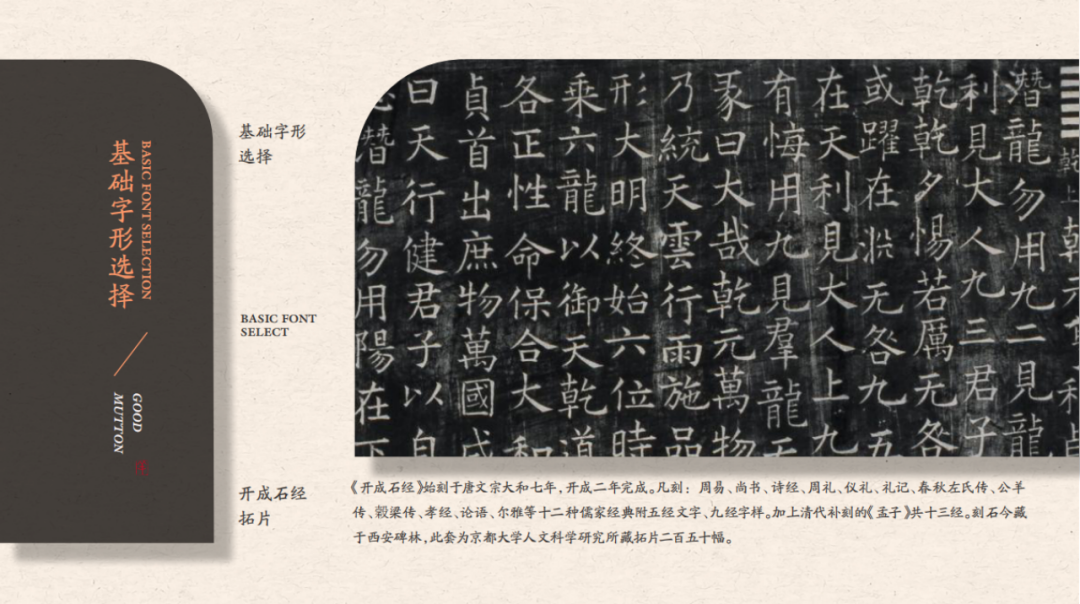 基础字形选择
BASIC FONT SELECTION
GOOD
MUTTON
基础字形
选择
BASIC FONT
SELECT
潛龍勿用九二見龍
利見大人九三君子
乾乾夕惕若厲无咎
或躍在淵无咎九五
在天利見大人上九
有悔用九見羣龍无
彖曰大哉乾元萬物
乃統天雲行雨施品
形大明終始六位時
乘六龍以御天乾道
各正性命保合大和
貞首出庶物萬國咸
曰天行健君子以自
潛龍勿用陽在下
开成石经
拓片
《开成石经》始刻于唐文宗大和七年，开成二年完成。凡刻：周易、尚书、诗经、周礼、仪礼、礼记、春秋左氏传、公羊
传、穀梁传、孝经、论语、尔雅等十二种儒家经典附五经文字、九经字样。加上清代补刻的《孟子》共十三经。刻石今藏
于西安碑林，此套为京都大学人文科学研究所藏拓片二百五十幅。